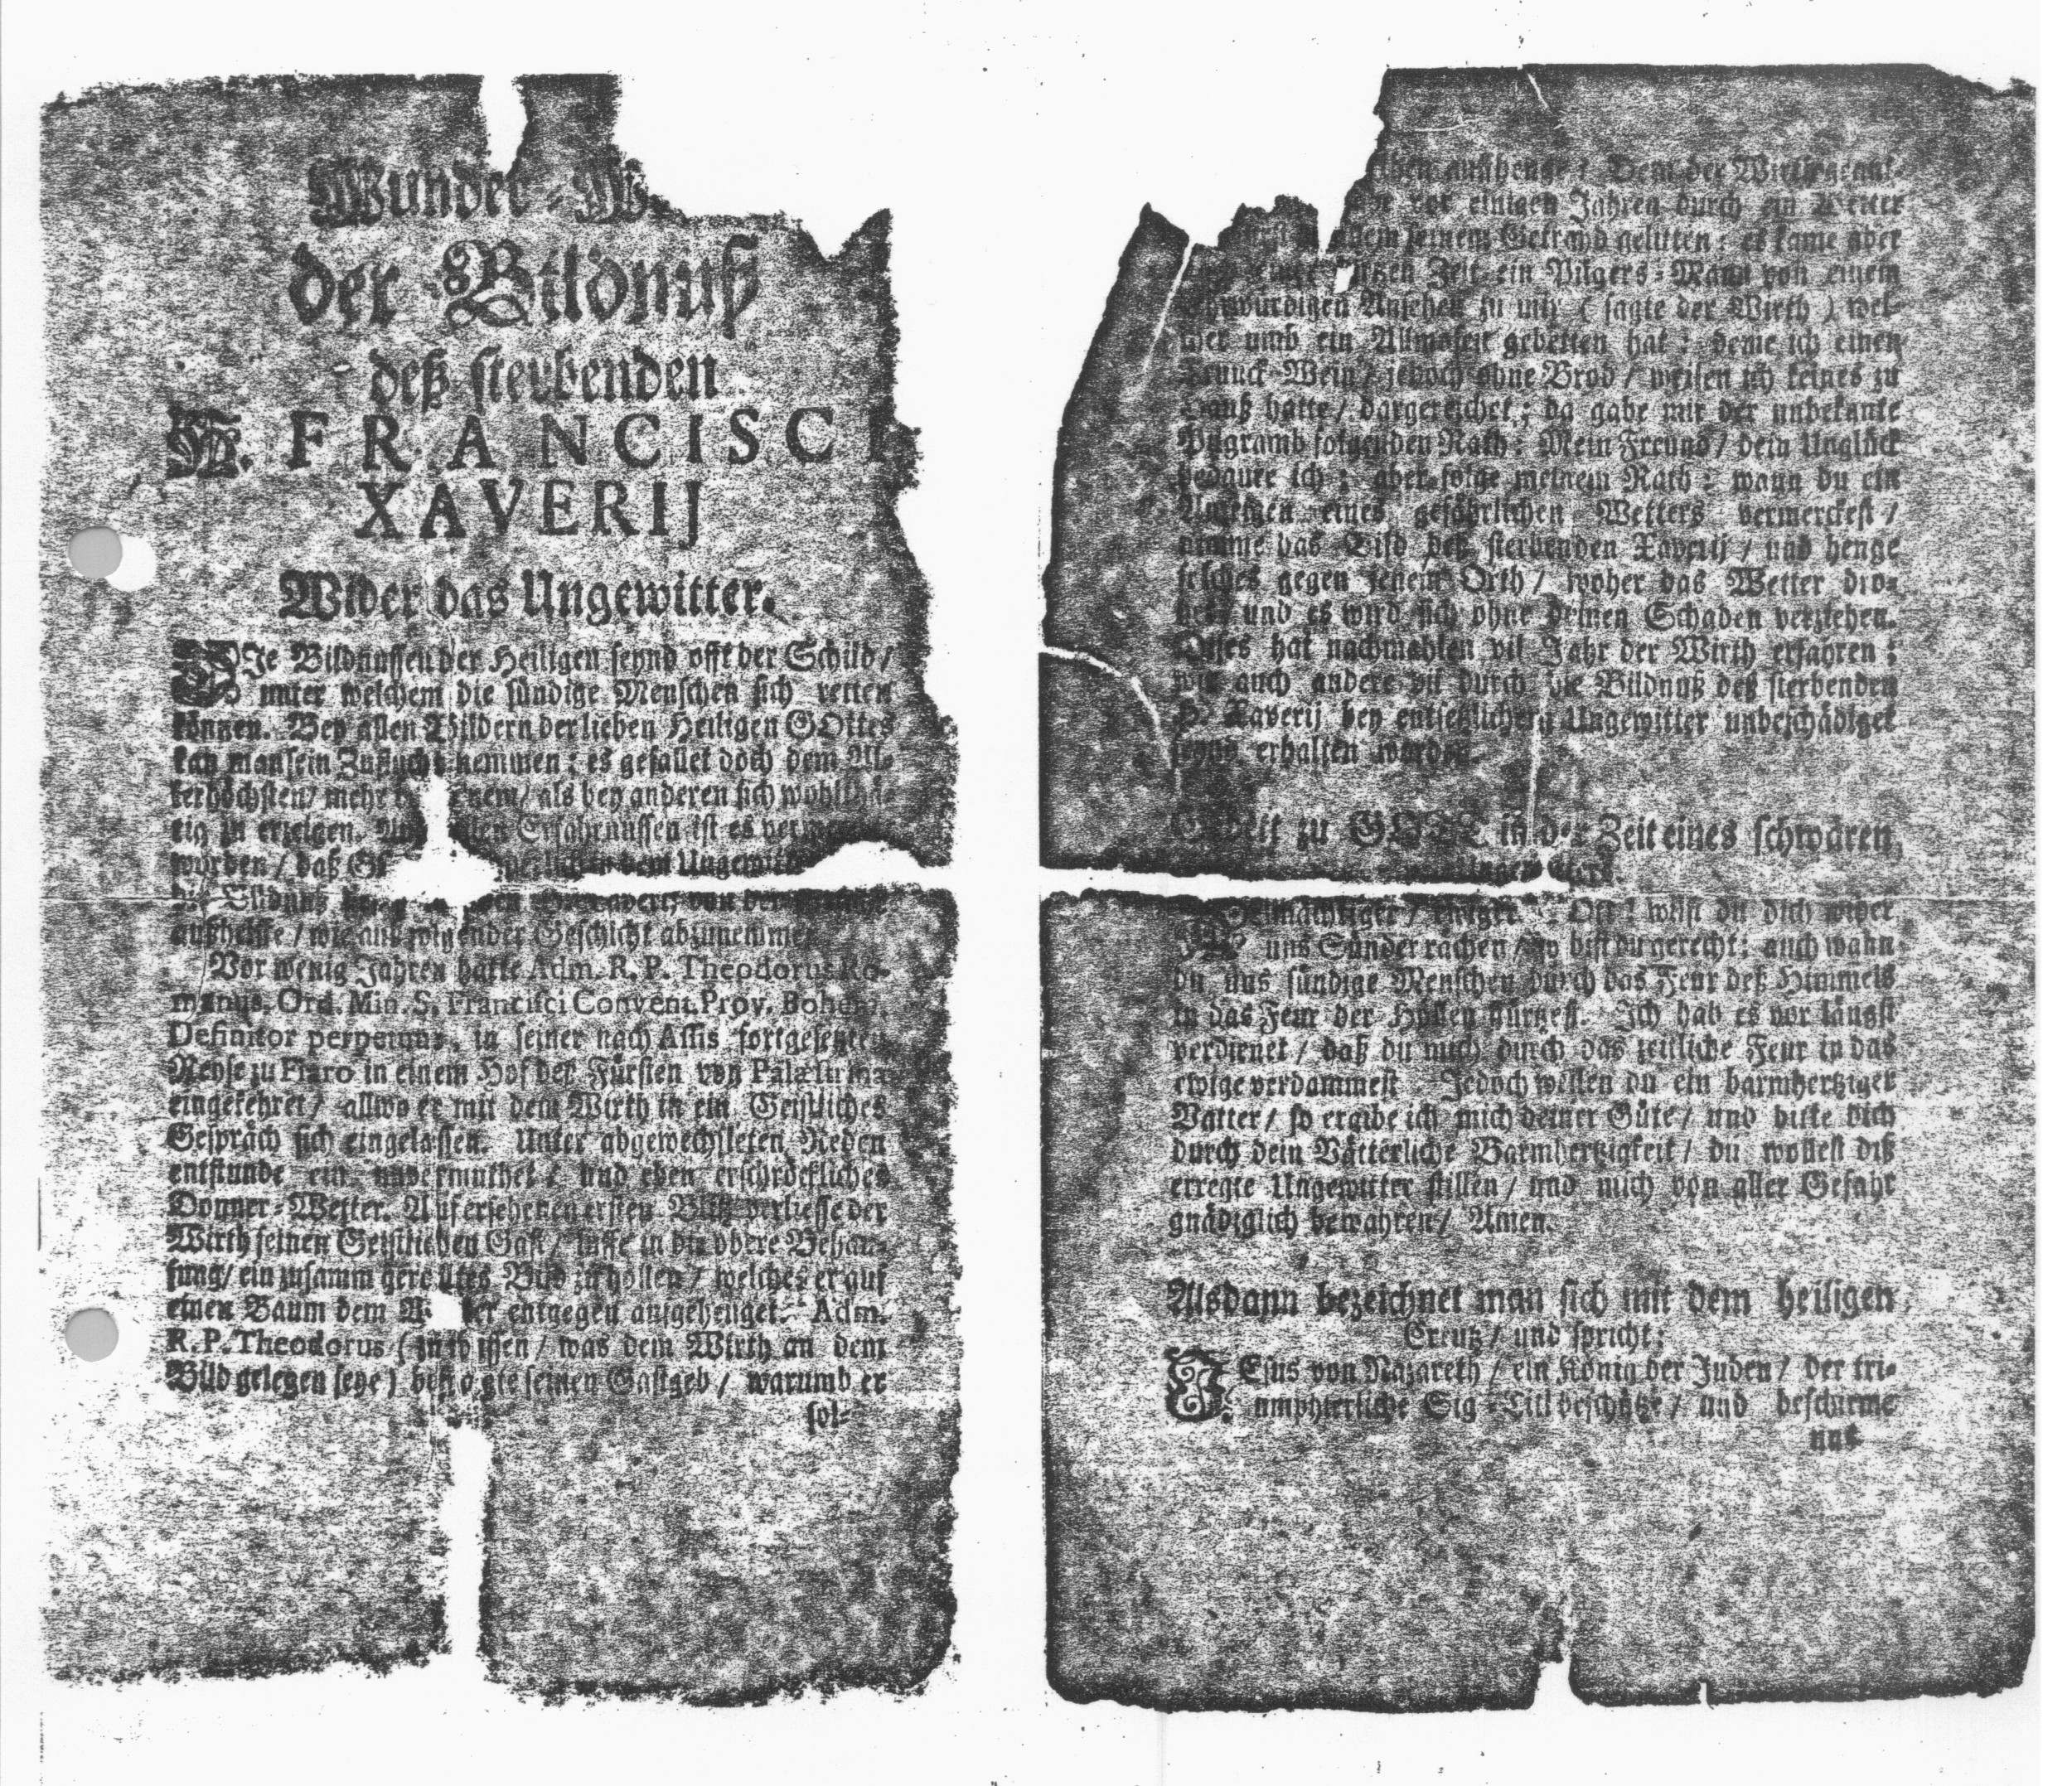 Wunder-
der Bildnuß
deß sterbenden
H. FRANCISCI
XAVERIJ
Wider das Ungewitter.
DIe Bildnussen der Heiligen seynd offt der Schild /
unter welchem die sündige Menschen sich retten
können. Bey allen Bildern der lieben Heiligen GOttes
kan man sein Zuflucht nemmen: es gefallet doch dem Al-
lerhöchsten / mehr / als bey anderen sich wohlthä-
tig zu erzeigen. Erfahrnussen ist es
worden / daß dem
Bildnuß
außheisse / wie auß folgender Geschicht abzunemmen.
Vor wenig Jahren hatte Adm. R. P. Theodorus Ro-
manus, Ord. Min. S. Francisci Convent. Prov. Bohem.
Definitor perpetuus, in seiner nach Assis fortgesetzten
Reyse zu Fiaro in einem Hof deß Fürsten von Palæstrina
eingekehret / allwo er mit dem Wirth in ein Geistliches
Gespräch sich eingelassen. Unter abgewechsleten Reden
entstunde ein unvermuthet / und eben erschröckliches
Donner-Wetter. Auf ersehenen ersten Blitz verliesse der
Wirth seinen Geistlichen Gast / luffe in die obere Behau-
sung / ein zusamm gerolltes Bild zu hollen / welches er auf
einen Baum dem entgegen aufgehenget. Adm.
R. P. Theodorus (zu wissen / was dem Wirth an dem
Bild gelegen seye) befragte seinen Gastgeb / warumb er
sol-
aufhenge? Deme der Wirth
vor einigen Jahren durch ein Wetter
seinem Getrayd gelitten: es kame aber
kurtzen Zeit ein Pilgers-Mann von einem
Ehrwürdigen Ansehen zu mir (sagte der Wirth) wel-
cher umb ein Allmosen gebetten hat: deme ich einen
Trunck Wein / jedoch ohne Brod / weilen ich keines zu
Hauß hatte / dargereichet; da gabe mir der unbekante
Pilgramb folgenden Rath: Mein Freund / dein Unglück
bedaure ich; aber folge meinem Rath: wann du ein
Anzeigen eines gefährlichen Wetters vermerckest /
nimme das Bild deß sterbenden Xaverij / und henge
solches gegen jenem Orth / woher das Wetter dro-
het / und es wird sich ohne deinen Schaden verziehen.
Dises hat nachmahlen vil Jahr der Wirth erfahren:
wie auch andere vil durch die Bildnuß deß sterbenden
H. Xaverij bey entsetzlichem Ungewitter unbeschädiget
seynd erhalten worden.
Gebett zu GOTT in der Zeit eines schwären
Ungewitters.
Allmächtiger / ewiger GOtt! wilst du dich wider
uns Sünder rachen / so bist du gerecht: auch wann
du uns sündige Menschen durch das Feur deß Himmels
in das Feur der Höllen stürtzest. Ich hab es vor längst
verdienet / daß du mich durch das zeitliche Feur in das
ewige verdammest. Jedoch weilen du ein barmhertziger
Vatter / so ergibe ich mich deiner Güte / und bitte dich
durch dein Vätterliche Barmhertzigkeit / du wollest diß
erregte Ungewitter stillen / und mich von aller Gefahr
gnädiglich bewahren / Amen.
Alsdann bezeichnet man sich mit dem heiligen
Creutz / und spricht:
JEsus von Nazareth / ein König der Juden / der tri-
umphierliche Sig-Titl beschütze / und beschirme
uns